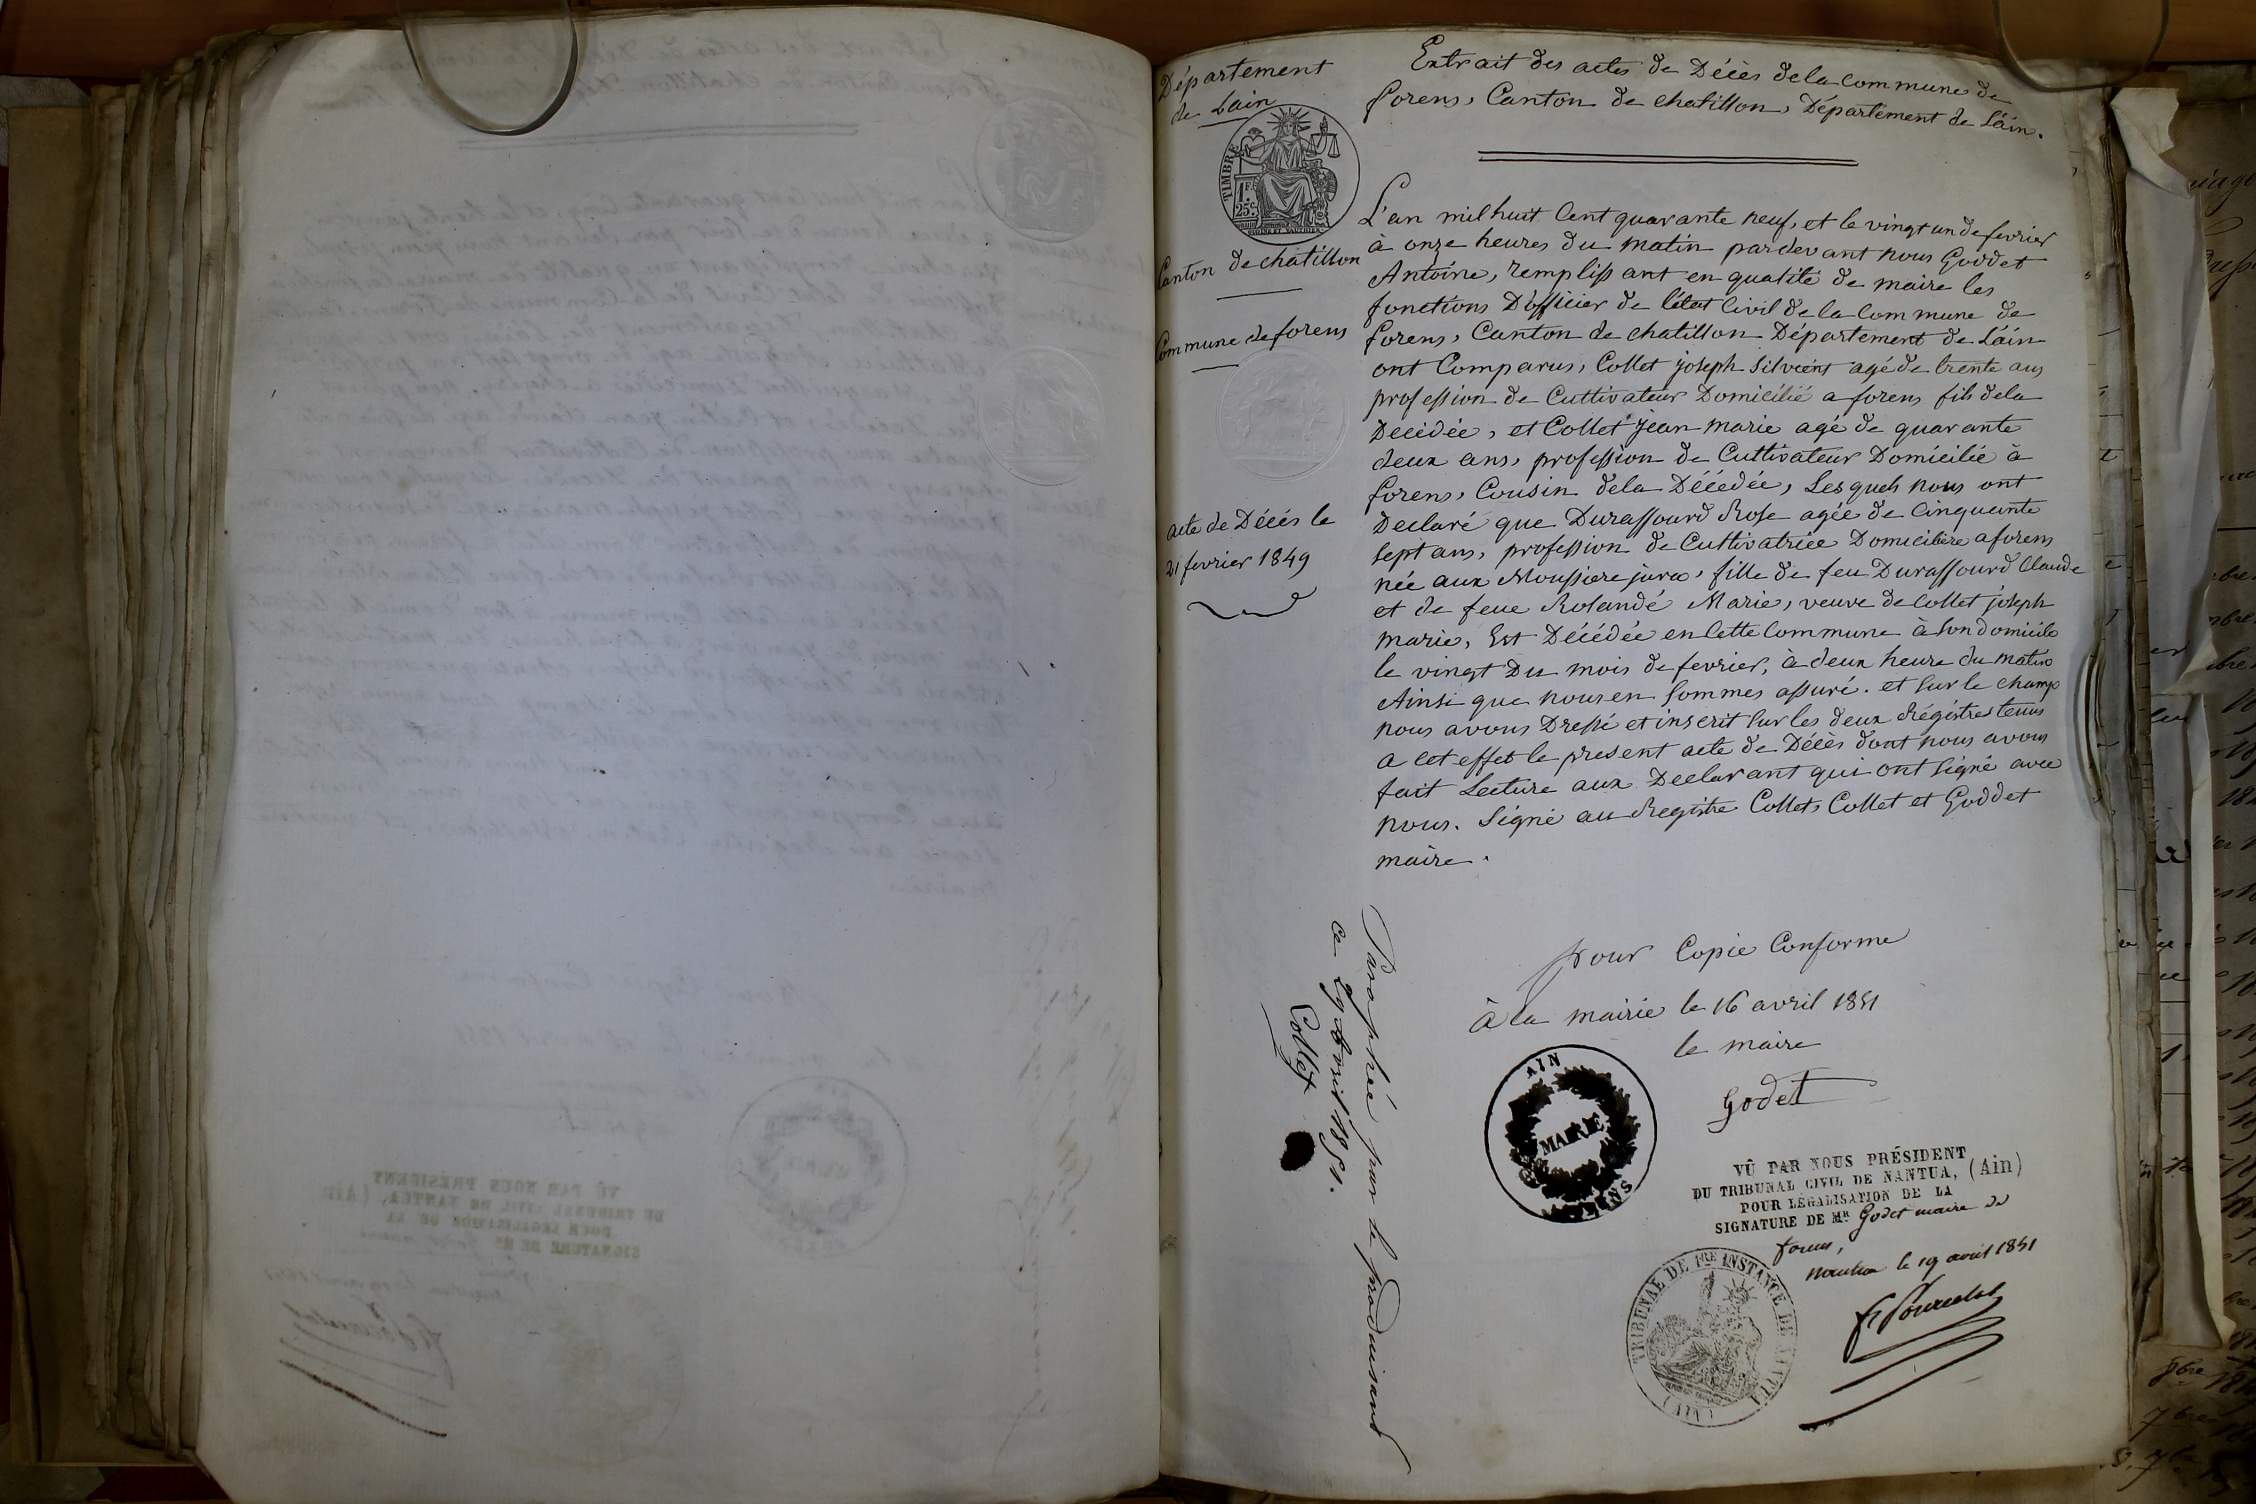 Département
de Lain
TIMBRE
1 F.
25 c.
Canton de chatillon
Commune de forens
acte de Décés le
21 fevrier 1849
Extrait des actes de Décès de la commune de
forens, Canton de chatillon, Département de L'ain.
L'an mil huit Cent quarante neuf, et le vingt un de fevrier
à onze heures du matin pardevant nous Goddet
Antoine, remplissant en qualité de maire les
fonctions D'officier de l'état Civil de la Commune de
forens, Canton de chatillon Département de L'ain
ont Comparus, Collet joseph Silvient agé de trente ans
profession de Cultivateur Domicilié a forens fils dela
Décédée, et Collet jean marie agé de quarante
deux ans, profession de Cultivateur Domicilié à
forens, Cousin dela Décédée, Lesquels nous ont
Declaré que Durassourd Rose agée de Cinquante
Sept ans, profession de Cultivatrice Domiciliée a forens
née aux Moussiere jura, fille de feu Durassourd Claude
et de feue Rolandé Marie, veuve de Collet joseph
marie, Est Décédée en Cette Commune à Son domicile
le vingt Du mois de fevrier, à deux heure du matin
Ainsi que nous en Sommes assuré. et Sur le champ
nous avons Dressé et inscrit Sur les deux Régistres tenus
a cet effet le present acte de Décès dont nous avons
fait Lecture aux Declarant qui ont Signé avec
nous. Signé au Registre Collet, Collet et Goddet
maire.
Pour Copie Conforme
À la mairie le 16 avril 1851
le maire
Godet
AIN
MAIRIE
FORENS
Paraphée par le produisant
ce 29 Avril 1851.
Collet
VÛ PAR NOUS PRÉSIDENT
DU TRIBUNAL CIVIL DE NANTUA, (Ain)
POUR LÉGALISATION DE LA
SIGNATURE DE MR Godet maire de
forens,
nantua le 19 avril 1851
TRIBUNAL DE 1RE INSTANCE DE NANTUA
(AIN)